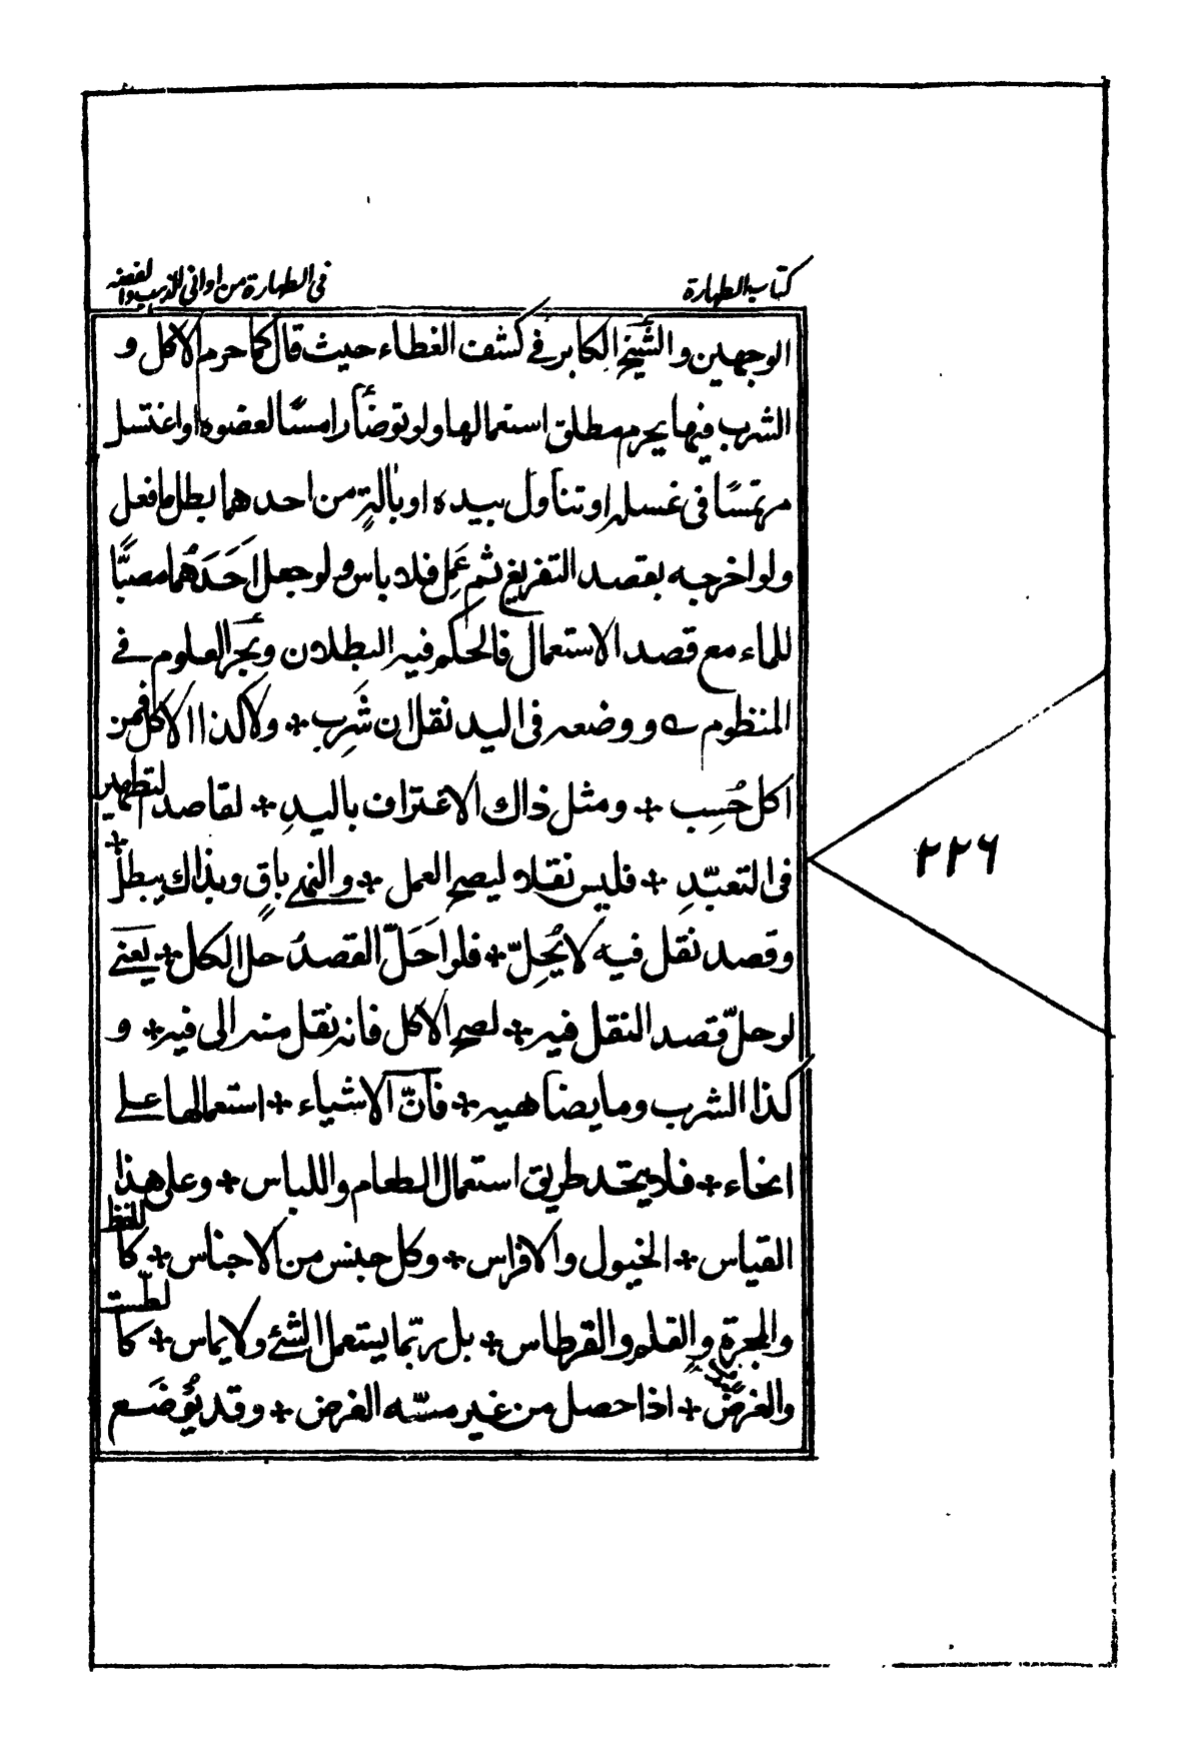 كتاب الطهارة
فى الطهارة من اوانى الذهب والفضه
الوجهين والشيخ الكابر فے كشف الغطاء حيث قال كما حرم الاكل و
الشرب فيها يحرم مطلق استعمالها ولو توضأ رامسًا لعضوه او اغتسل
مرتمسًا فى غسله او تناول بيده او بآلةٍ من احدهما بطل ما فعل
ولو اخرجه بقصد التفريغ ثم عَمِل فلا باس ولو جعل اَحَدَهُما مصبًّا
للماء مع قصد الاستعمال فالحكم فيه البطلان وبَحْر العلوم فے
المنظومے ووضعه فى اليد نقل ان شَرِب + ولا كذا الاكل فمن
اكل حُسِب + ومثل ذاك الاغتراف باليدِ + لقاصد التطهير
فى التعبّدِ + فليس نقلا ليصح العمل + والنهے باقٍ وبذاك يبطل +
وقصد نقل فيه لا يُحِلّ + فلو اَحَلّ القصدُ حل الكل + يَعنے
لو حلّ قصد النقل فيه + لصح الاكل فانه نقل منه الى فيه + و
كذا الشرب وما يضاهيه + فانّ الاشياء + استعمالها علے
انحاء + فلا يتحد طريق استعمال الطعام واللباس + وعلى هذا
القياس + الخيول والافراس + وكل جنس من الاجناس + كاللفظ
والمجمرة والقلم والقرطاس + بل ربّما يستعمل الشئ ولا يماس + كالطّست
والغرض + اذا حصل من غير مسّه الغرض + وقد يُوضَع
٢٢٦